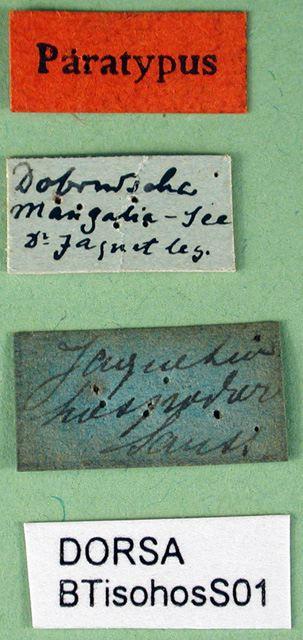 Paratypus
Dobrudscha
Mangalia-See
Dr. Jaquet leg.
Jaquetia
hospodar
Sauss.
DORSA
BTisohosS01